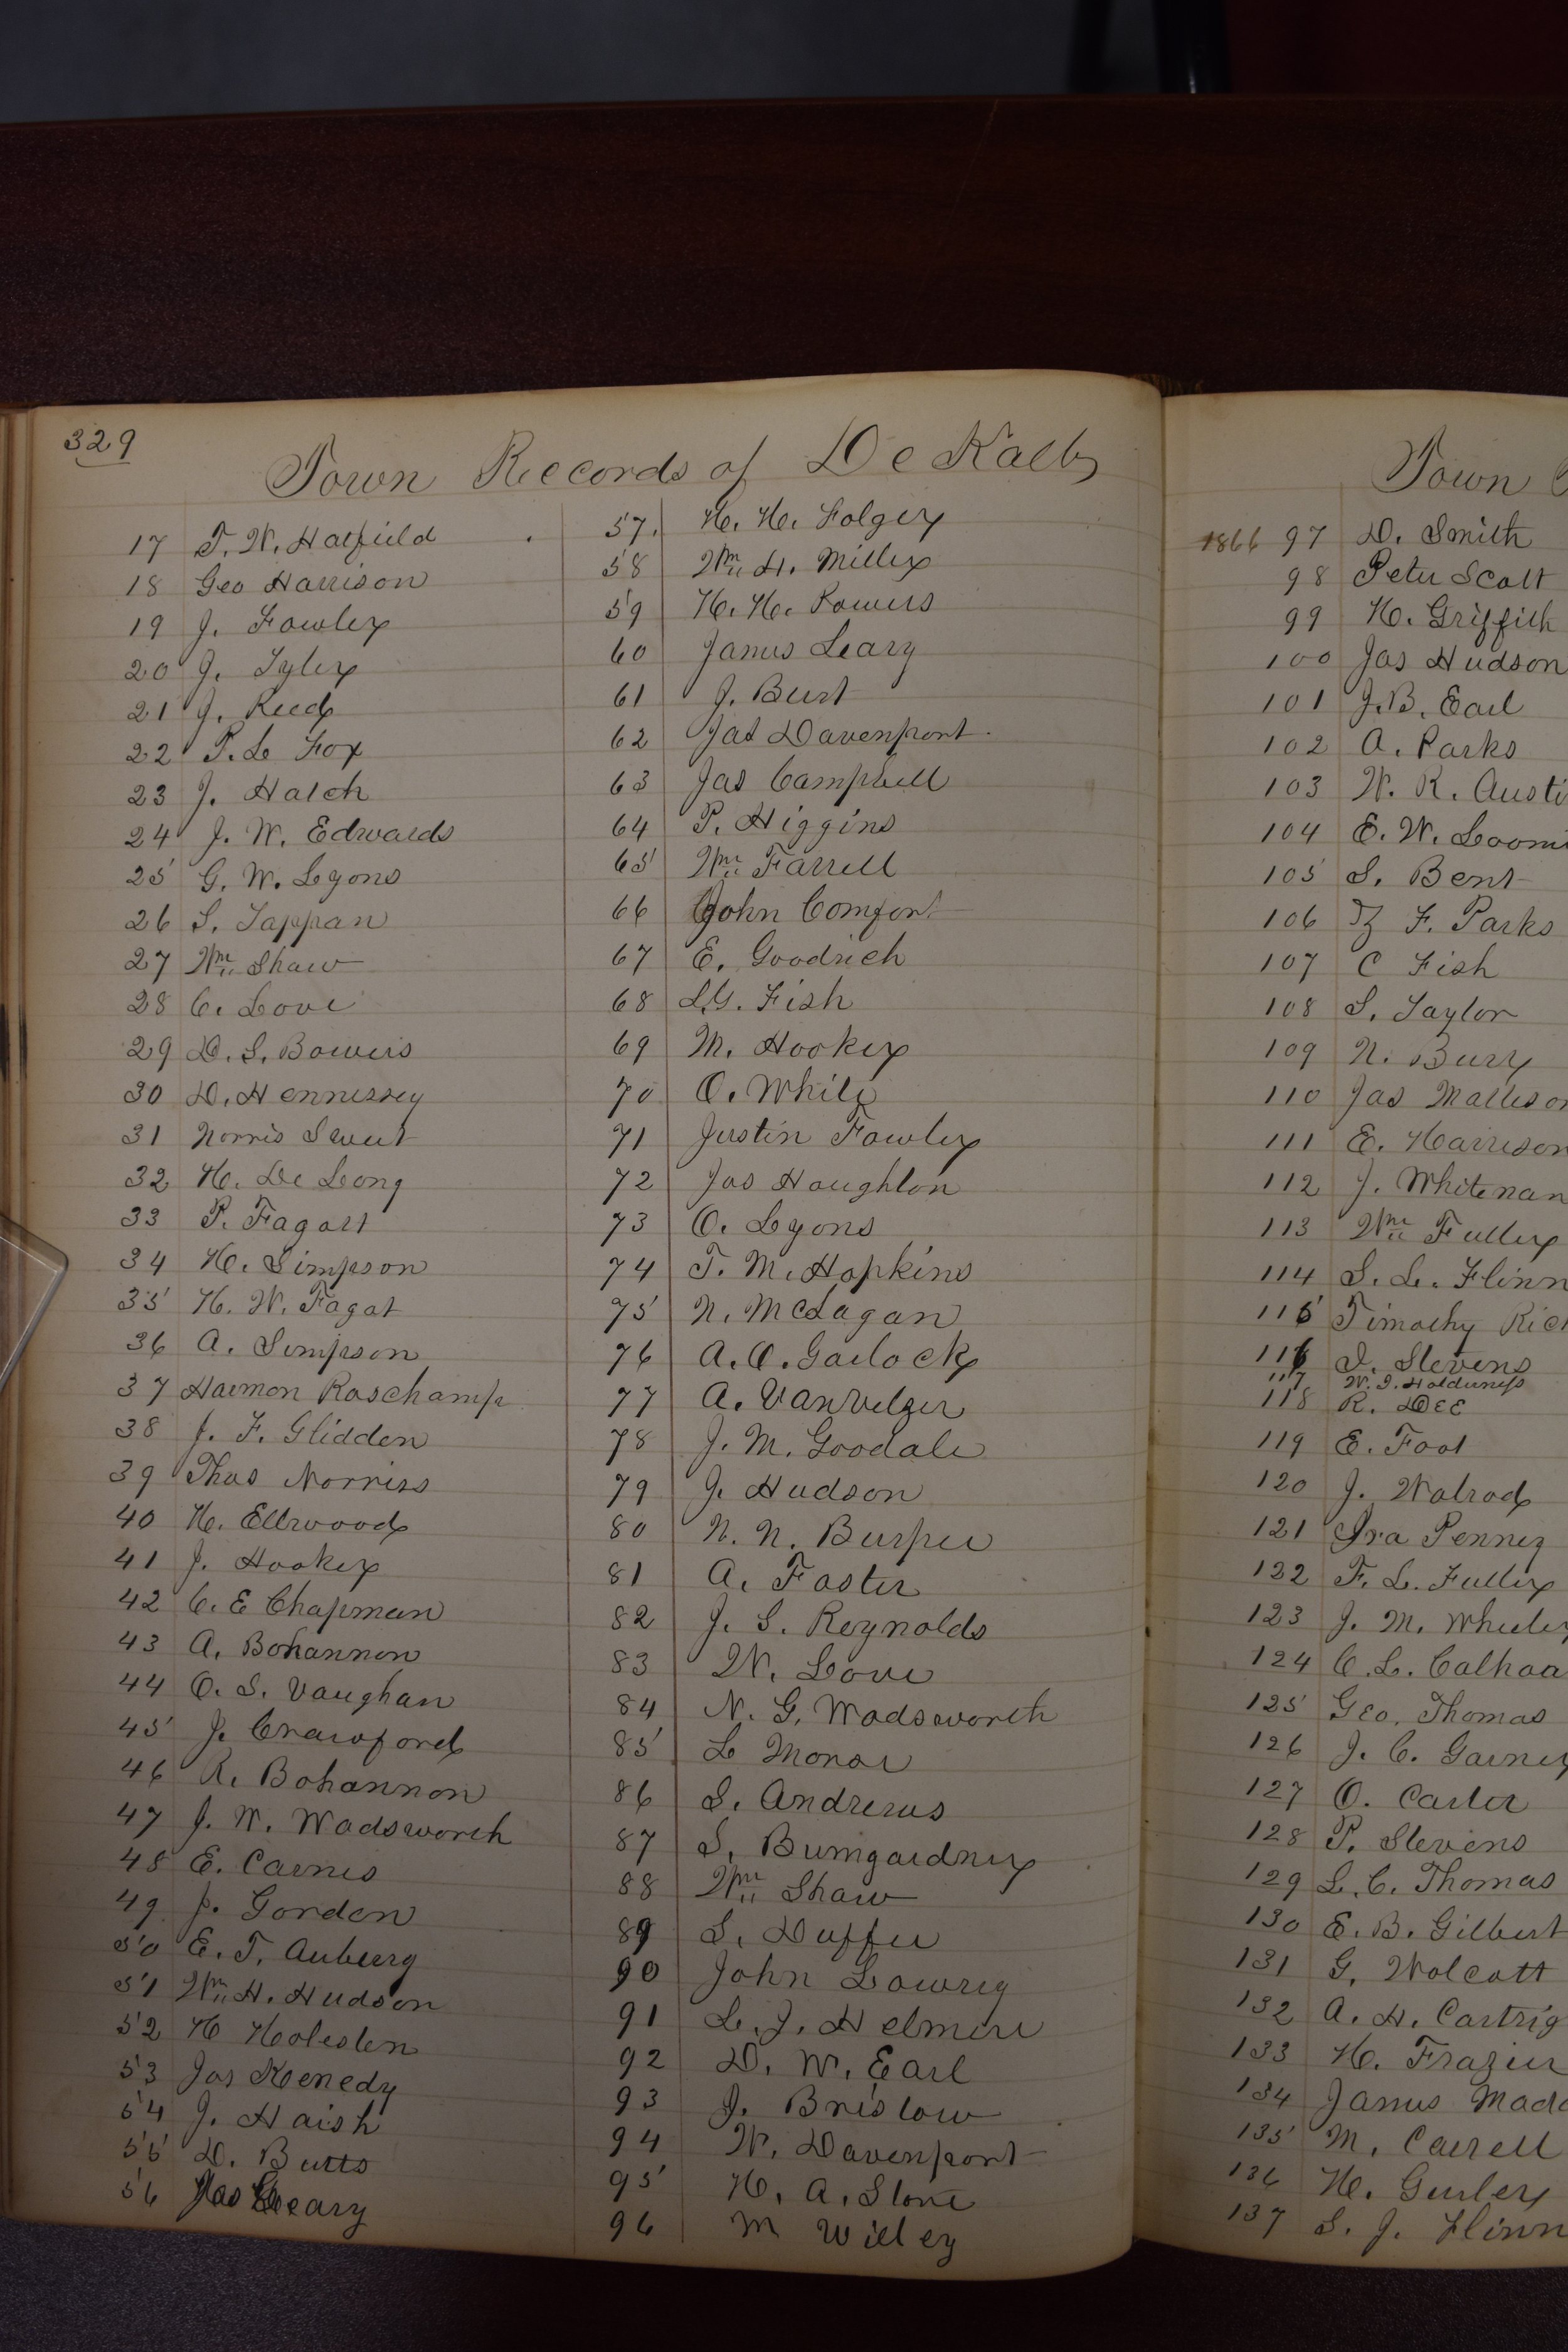 329
Town Records of De Kalb
17 T. W. Hatfield
18 Geo Harrison
19 J. Fowler
20 J. Tyler
21 J. Reed
22 P. L Fox
23 J. Hatch
24 J. W. Edwards
25 G. W. Lyons
26 S. Tappan
27 Wm Shaw
28 C. Love
29 D. S. Bowers
30 D. Hennessey
31 Norris Sweet
32 H. De Long
33 P. Fagart
34 H. Simpson
35 H. W. Fagat
36 A. Simpson
37 Harmon Roschamp
38 J. F. Glidden
39 Thos Norriss
40 H. Ellwood
41 J. Hooker
42 C. E Chapman
43 A. Bohannon
44 O. S. Vaughan
45 J. Crawford
46 R. Bohannon
47 J. W. Wadsworth
48 E. Carnes
49 J. Gordon
50 E. T. Auberry
51 Wm H. Hudson
52 H Holeslen
53 Jas Kenedy
54 J. Haish
55 D. Butts
56 Jas Geary
57. H. H. Folger
58 Wm H. Miller
59 H. H. Powers
60 James Leary
61 J. Burt
62 Jas Davenport
63 Jas Campbell
64 P. Higgins
65 Wm Farrell
66 John Comfort
67 E. Goodrich
68 L.G. Fish
69 M. Hooker
70 O. White
71 Justin Fowler
72 Jas Houghton
73 O. Lyons
74 T. M. Hopkins
75 N. McLagan
76 A. O. Garlock
77 A. VanVelzer
78 J. M. Goodale
79 J. Hudson
80 N. N. Burpee
81 A. Foster
82 J. S. Reynolds
83 W. Love
84 N. G. Wadsworth
85 L Monar
86 S. Andrews
87 S. Bumgardner
88 Wm Shaw
89 S. Duffee
90 John Lowrey
91 L. J. Helmere
92 D. W. Earl
93 J. Brislow
94 W. Davenport
95 H. A. Stone
96 M Willey
Town
1866 97 D. Smith
98 Peter Scott
99 H. Griffith
100 Jas Hudson
101 J. B. Earl
102 A. Parks
103 W. R. Austi
104 E. W. Loomi
105 S. Bent
106 Tz F. Parks
107 C Fish
108 S. Taylor
109 N. Bury
110 Jas Matteson
111 E. Harrison
112 J. Whiteman
113 Wm Fuller
114 S. L. Flinn
115 Timothy Rich
116 I. Stevens
117 W. I. Holderness
118 R. Dee
119 E. Foot
120 J. Walrod
121 Ira Penney
122 F. L. Fuller
123 J. M. Wheeler
124 C. L. Calhoa
125 Geo. Thomas
126 J. C. Garner
127 O. Carter
128 P. Stevens
129 L. C. Thomas
130 E. B. Gilbert
131 G. Wolcott
132 A. H. Cartrig
133 H. Frazier
134 James Mado
135 M. Carrell
136 H. Gurler
137 S. J. Flinn